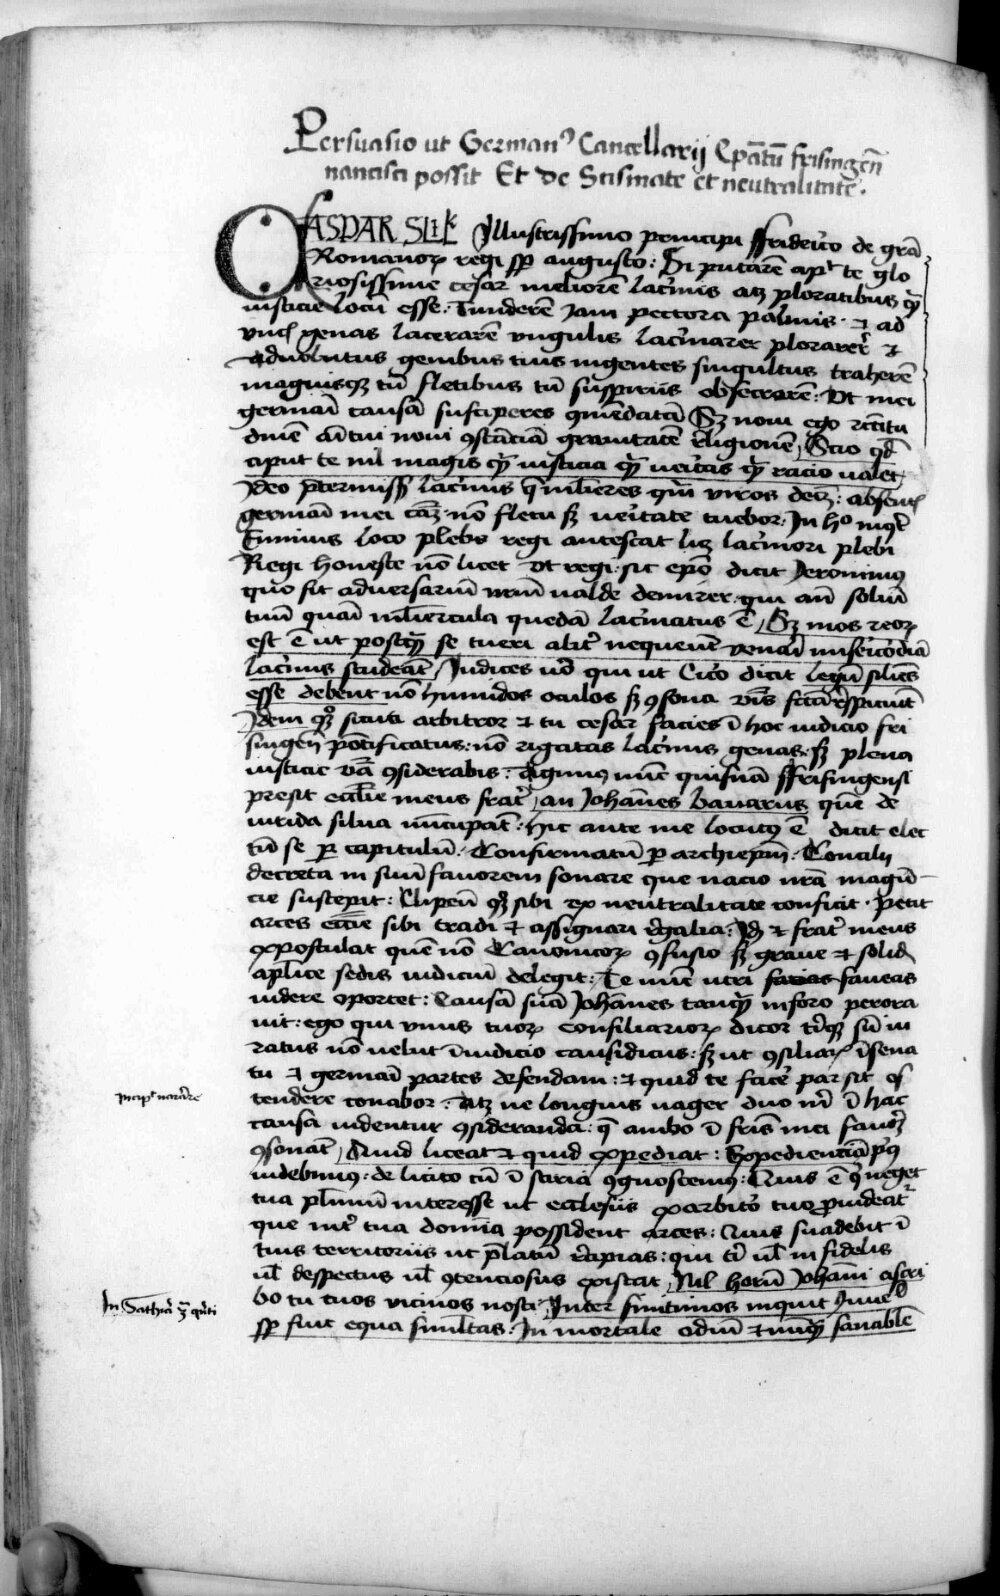 Persuasio ut German᾽ Cancellarij Ep̄atū frisingēn
nancisci possit Et de Scismate et neutralitate.
CASPAR SLIK Illustrissimo principi ffriderico de grā
Romanoꝝ regi sp̄ augusto: Si putarē apᵗ te glo
riosissime cesar meliorē lacrimis atꝫ ploratibus qᷓ
iusticie locū esse. Tunderē iam pectora palmis ⁊ ad
genas lacerarē ungulis lacrimarer plorarer ⁊
advolutus genibus tuis ingentes singultus traherē
magnisqꝫ tū fletibus tū suspiriis obsecrarē: Ut mei
germani causā susciperes ꝯmēdatā Sꝫ novi ego
novi ꝯstāciā gravitatē religionē, Scio qd̄
aput te nil magis qᷓ iusticia qᷓ veritas qᷓ racio valet,
Ideo p̄termissis lacrimis q̄ mulieres qᷓ viros decꝫ: absentis
germani mei cāꝫ nō fletu sꝫ veritate tuebor. In hᵒ inqᵗ
Ennius loco plebs regi antestat lꝫ lacrimari plebi
Regi honeste nō licet Ut regi sic epō dicit Jeronimus
quo fit adversariū nr̄m valde demirer qui nō solū
tuā quāi muliercula quedā lacrimatus ē, Sꝫ mos reoꝝ
est ē ut postqᷓ se tueri alitʳ nequeunt venari misericordiā
lacrimis studeāt, Judices vō qui ut Cicero dicit legū siliēs
esse debent nō humidos oculos sꝫ ꝯsona
Idem sicuti arbitror ⁊ tu cesar facies ī hoc iudicio fri
singēn pōtificatus: nō rigatas lacrimis genas sꝫ plena
iusticie vba ꝯsiderabis: Agimus nūc quisnā ffrisingensi
presit ecclie meus fratʳ, an Johānes bavarus quē de
nitida silva nūcupāt: hic ante me locutꝰ ē dicit elec
tū se ꝑ capitulū: Confirmatū ꝑ archiepm̄: Concilii
decreta in suū favorem sonare que nacio nr̄a magū
cie suscepit: Clipeū qꝫ sibi ex neutralitate conficit. Petit
arces eccie sibi tradi ⁊ assignari regalia: Id ⁊ fratʳ meus
expostulat quē nō Canonicoꝝ ꝯfusio sꝫ grave ⁊ solid
aplice sedis iudiciū delegit: Te nūc utri faveas
videre oportet: Causā suā Johānes tanqᷓ in foro perora
vit: ego qui unus tuoꝝ consiliarioꝝ dicor sū iu
ratus nō velut ī iudicio causidicus: sꝫ ut ꝯsiliariꝰ ī sena
tu ⁊ germani partes defendam: ⁊ quid te facere par sit os
tendere conabor: Atꝫ ne longius vager duo m̄ ī hac
causa videntur ꝯsideranda: q̄ ambo ī fr̄is mei
ꝯsonāt, Quid liceat ⁊ quid expediat: Expedienciā pʳꝰ
videbimus: de licito tū ī sciria ꝯgnoscemꝰ: Quis ē qⁱ neget
tua plurimū interesse ut ecclesiis ex arbitrio tuo provideatʳ
que intʳ tua dominia possident arces: Quis suadebit ī
tuis territoriis ut p̄latū recipias: qui tⁱ ul̄ infidelis
ul̄ despectus ul̄ ꝯtenciosus existat, Nil horū Johāni ascri
bo tu tuos vicinos nosti Inter finitimos inquit Juveᵇ
sp̄ fuit equa simultas: Inmortale odiū ⁊ nūqᷓ sanabile
In Sathira